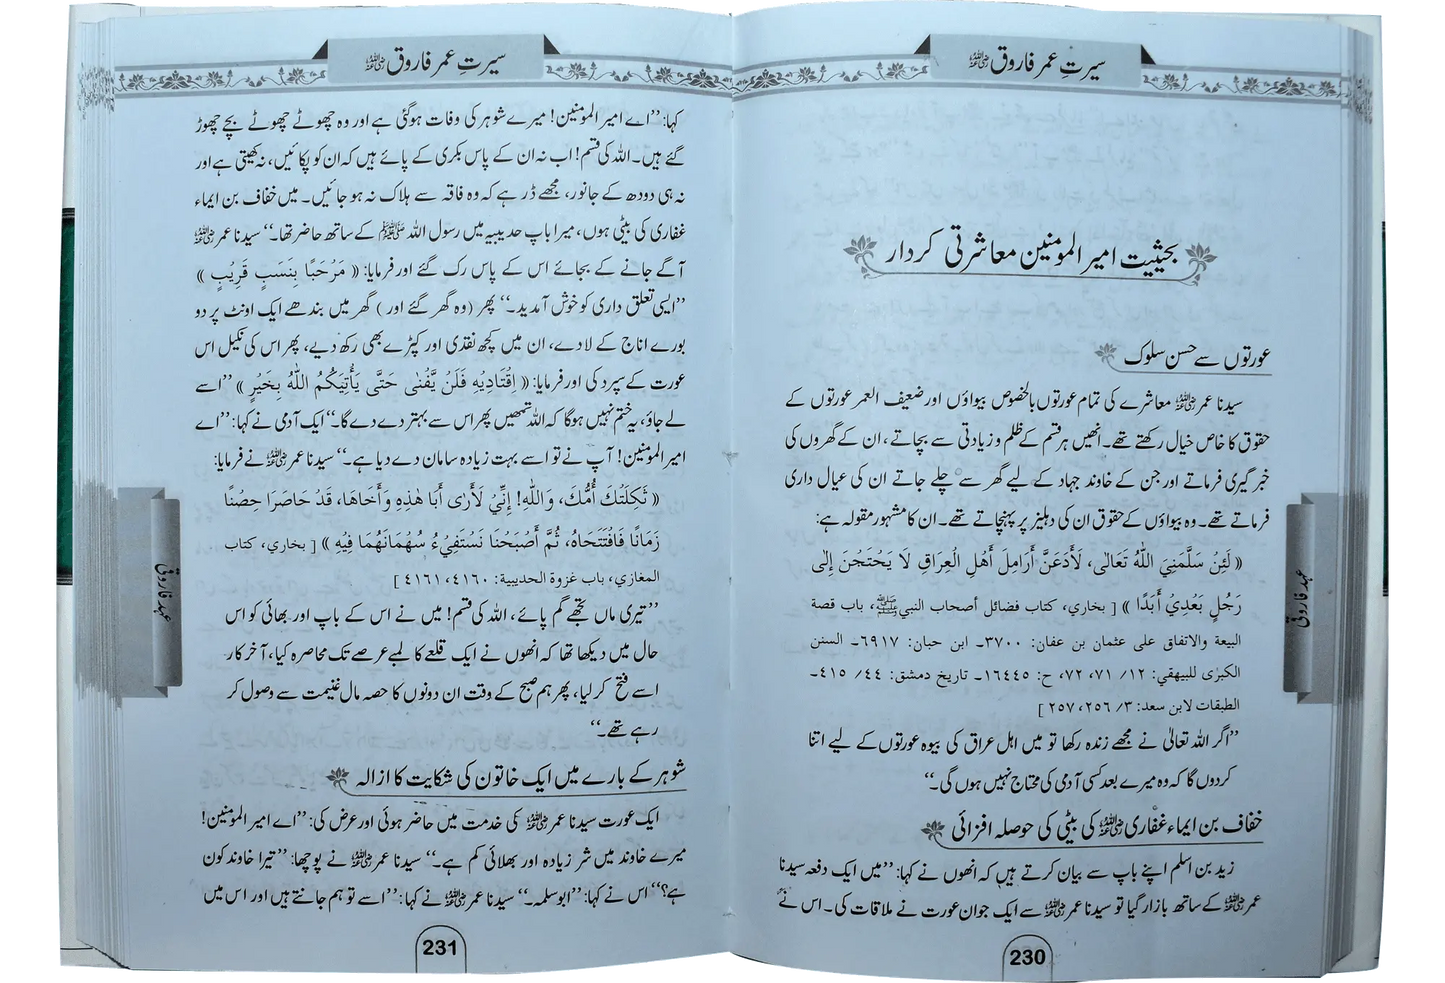 سیرتِ عمر فاروق ﷜
بحیثیت امیر المومنین معاشرتی کردار
عورتوں سے حسن سلوک
سیدنا عمر﷜ معاشرے کی تمام عورتوں بالخصوص بیواؤں اور ضعیف العمر عورتوں کے
حقوق کا خاص خیال رکھتے تھے۔ انھیں ہر قسم کے ظلم و زیادتی سے بچاتے، ان کے گھروں کی
خبر گیری فرماتے اور جن کے خاوند جہاد کے لیے گھر سے چلے جاتے ان کی عیال داری
فرماتے تھے۔ وہ بیواؤں کے حقوق ان کی دہلیز پر پہنچاتے تھے۔ ان کا مشہور مقولہ ہے:
« لَئِنْ سَلَّمَنِيَ اللّٰهُ تَعَالٰى، لَأَدَعَنَّ أَرَامِلَ أَهْلِ الْعِرَاقِ لَا يَحْتَجْنَ إِلٰى
رَجُلٍ بَعْدِيْ أَبَدًا » [ بخاري، كتاب فضائل أصحاب النبيﷺ، باب قصة
البيعة والاتفاق على عثمان بن عفان: ٣٧٠٠۔ ابن حبان: ٦٩١٧۔ السنن
الكبرٰى للبيهقي: ١٢/ ٧١، ٧٢، ح: ١٦٤٤٥۔ تاريخ دمشق: ٤٤/ ٤١٥۔
الطبقات لابن سعد: ٣/ ٢٥٦، ٢٥٧ ]
’’اگر اللہ تعالیٰ نے مجھے زندہ رکھا تو میں اہل عراق کی بیوہ عورتوں کے لیے اتنا
کردوں گا کہ وہ میرے بعد کسی آدمی کی محتاج نہیں ہوں گی۔‘‘
خفاف بن ایماء غفاری﷜ کی بیٹی کی حوصلہ افزائی
زید بن اسلم اپنے باپ سے بیان کرتے ہیں کہ انھوں نے کہا: ’’میں ایک دفعہ سیدنا
عمر﷜ کے ساتھ بازار گیا تو سیدنا عمر﷜ سے ایک جوان عورت نے ملاقات کی۔ اس نے
عہد فاروقی
230
سیرتِ عمر فاروق ﷜
کہا: ’’اے امیر المومنین! میرے شوہر کی وفات ہوگئی ہے اور وہ چھوٹے چھوٹے بچے چھوڑ
گئے ہیں۔ اللہ کی قسم! اب نہ ان کے پاس بکری کے پائے ہیں کہ ان کو پکائیں، نہ کھیتی ہے اور
نہ ہی دودھ کے جانور، مجھے ڈر ہے کہ وہ فاقہ سے ہلاک نہ ہو جائیں۔ میں خفاف بن ایماء
غفاری کی بیٹی ہوں، میرا باپ حدیبیہ میں رسول اللہ ﷺ کے ساتھ حاضر تھا۔‘‘ سیدنا عمر﷜
آگے جانے کے بجائے اس کے پاس رک گئے اور فرمایا: « مَرْحَبًا بِنَسَبٍ قَرِيْبٍ »
’’ایسی تعلق داری کو خوش آمدید۔‘‘ پھر (وہ گھر گئے اور ) گھر میں بندھے ایک اونٹ پر دو
بورے اناج کے لادے، ان میں کچھ نقدی اور کپڑے بھی رکھ دیے، پھر اس کی نکیل اس
عورت کے سپرد کی اور فرمایا: « اِقْتَادِيْهِ فَلَنْ يَّفْنٰى حَتّٰى يَأْتِيَكُمُ اللّٰهُ بِخَيْرٍ » ’’اسے
لے جاؤ، یہ ختم نہیں ہوگا کہ اللہ تمھیں پھر اس سے بہتر دے دے گا۔‘‘ ایک آدمی نے کہا: ’’اے
امیر المومنین! آپ نے تو اسے بہت زیادہ سامان دے دیا ہے۔‘‘ سیدنا عمر﷜ نے فرمایا:
« ثَكِلَتْكَ أُمُّكَ، وَاللّٰهِ! إِنِّيْ لَأَرٰى أَبَا هٰذِهٖ وَأَخَاهَا، قَدْ حَاصَرَا حِصْنًا
زَمَانًا فَافْتَتَحَاهُ، ثُمَّ أَصْبَحْنَا نَسْتَفِيْءُ سُهْمَانَهُمَا فِيْهِ » [ بخاري، كتاب
المغازي، باب غزوة الحديبية: ٤١٦٠، ٤١٦١ ]
’’تیری ماں تجھے گم پائے، اللہ کی قسم! میں نے اس کے باپ اور بھائی کو اس
حال میں دیکھا تھا کہ انھوں نے ایک قلعے کا لمبے عرصے تک محاصرہ کیا، آخر کار
اسے فتح کر لیا، پھر ہم صبح کے وقت ان دونوں کا حصہ مال غنیمت سے وصول کر
رہے تھے۔‘‘
شوہر کے بارے میں ایک خاتون کی شکایت کا ازالہ
ایک عورت سیدنا عمر﷜ کی خدمت میں حاضر ہوئی اور عرض کی: ’’اے امیر المومنین!
میرے خاوند میں شر زیادہ اور بھلائی کم ہے۔‘‘ سیدنا عمر﷜ نے پوچھا: ’’تیرا خاوند کون
ہے؟‘‘ اس نے کہا: ’’ابوسلمہ۔‘‘ سیدنا عمر﷜ نے کہا: ’’اسے تو ہم جانتے ہیں اور اس میں
عہد فاروقی
231